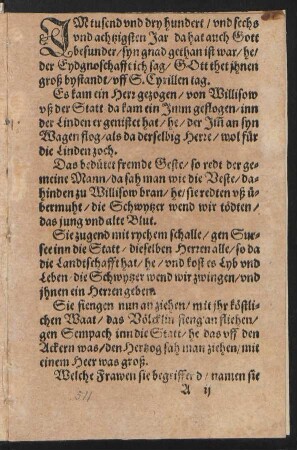 IM tusend vnd dry hundert / vnd sechs
vnd achtzigsten Jar da hat auch Gott
besunder / syn gnad gethan ist war / he /
der Eydgnoschafft ich sag / GOtt thet jhnen
groß bystandt / vff S. Cyrillen tag.
Es kam ein Herr gezogen / von Willisow
vß der Statt da kam ein Imm geflogen / inn
der Linden er genistet hat / he / der Jm̃ an syn
Wagen flog / als da derselbig Herre / wol für
die Linden zoch.
Das bedütet fremde Geste / so redt der ge-
meine Mann / da sah man wie die Veste / da-
hinden zu Willisow bran / he / sie redten vß ü-
bermuht / die Schwytzer wend wir tödten /
das jung vnd alte Blut.
Sie zugend mit rychem schalle / gen Sur-
see inn die Statt / dieselben Herren alle / so da
die Landtschafft hat / he / vnd kost es Lyb vnd
Leben / die Schwytzer wend wir zwingen / vnd
jhnen ein Herren geben.
Sie fiengen nun an ziehen / mit jhr köstli-
chen Waat / das Völcklin fieng an fliehen /
gen Sempach inn die Statt / he das vff den
Ackern was / den Hertzog sah man ziehen / mit
einem Heer was groß.
Welche Frawen sie begriffend / namen sie
A ij